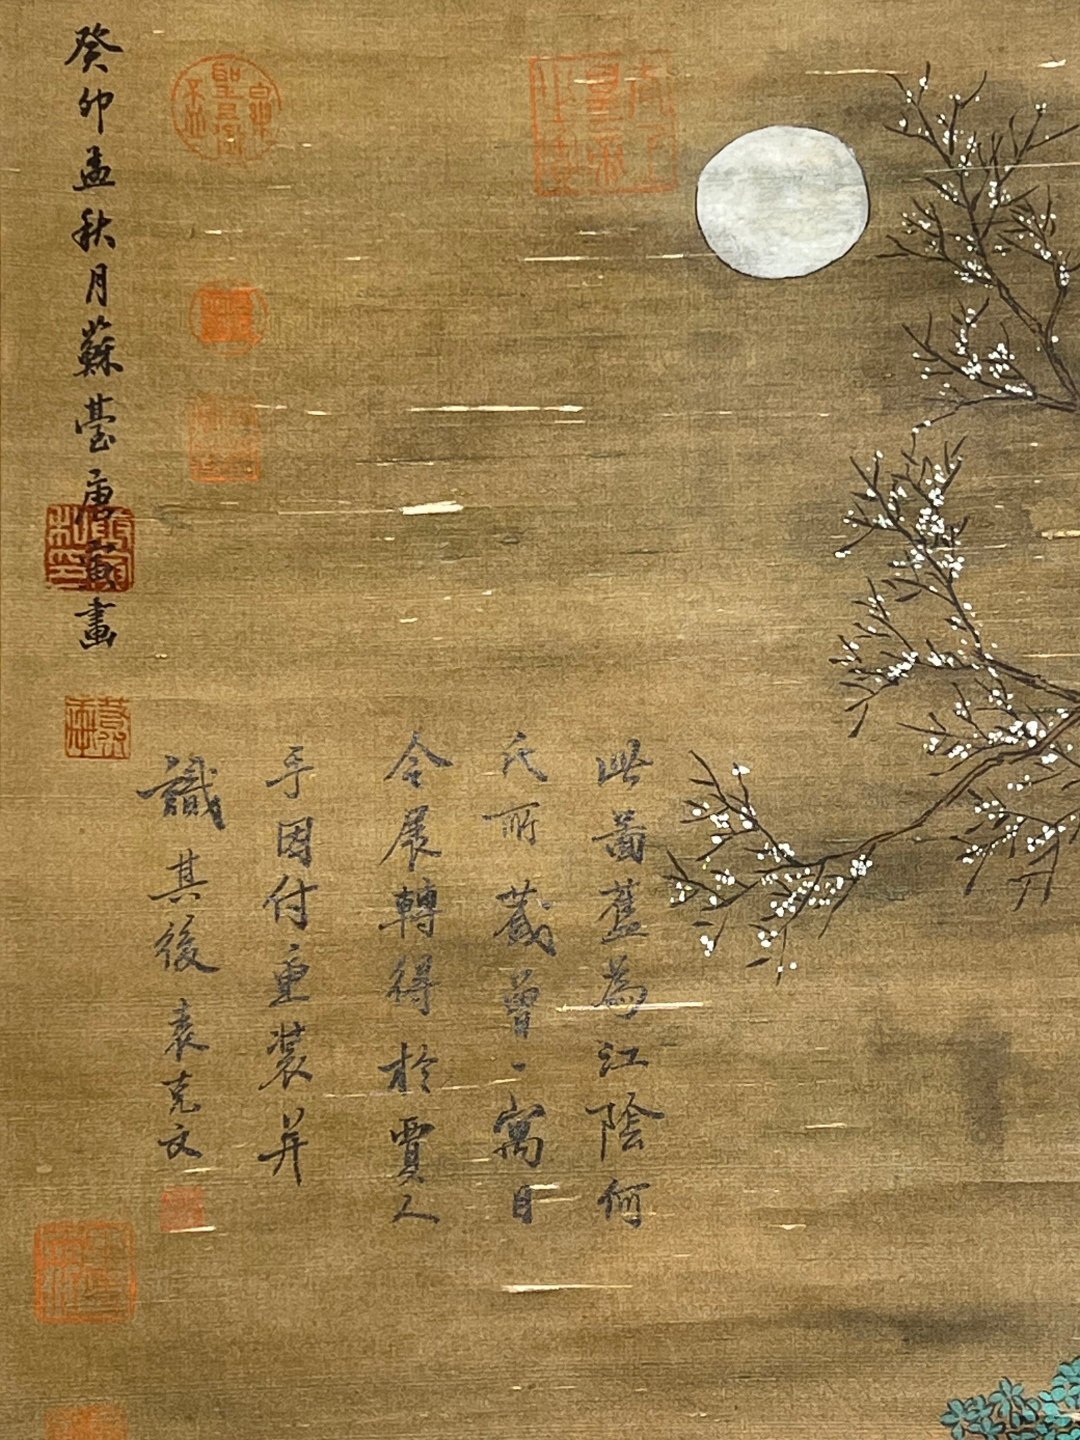 太上皇帝之寶
此啚舊為江陰何
氏所藏曾一寓目
今展轉得於賈人
手因付重裝并
識其後袁克文
癸卯孟秋月蘇臺唐寅畫